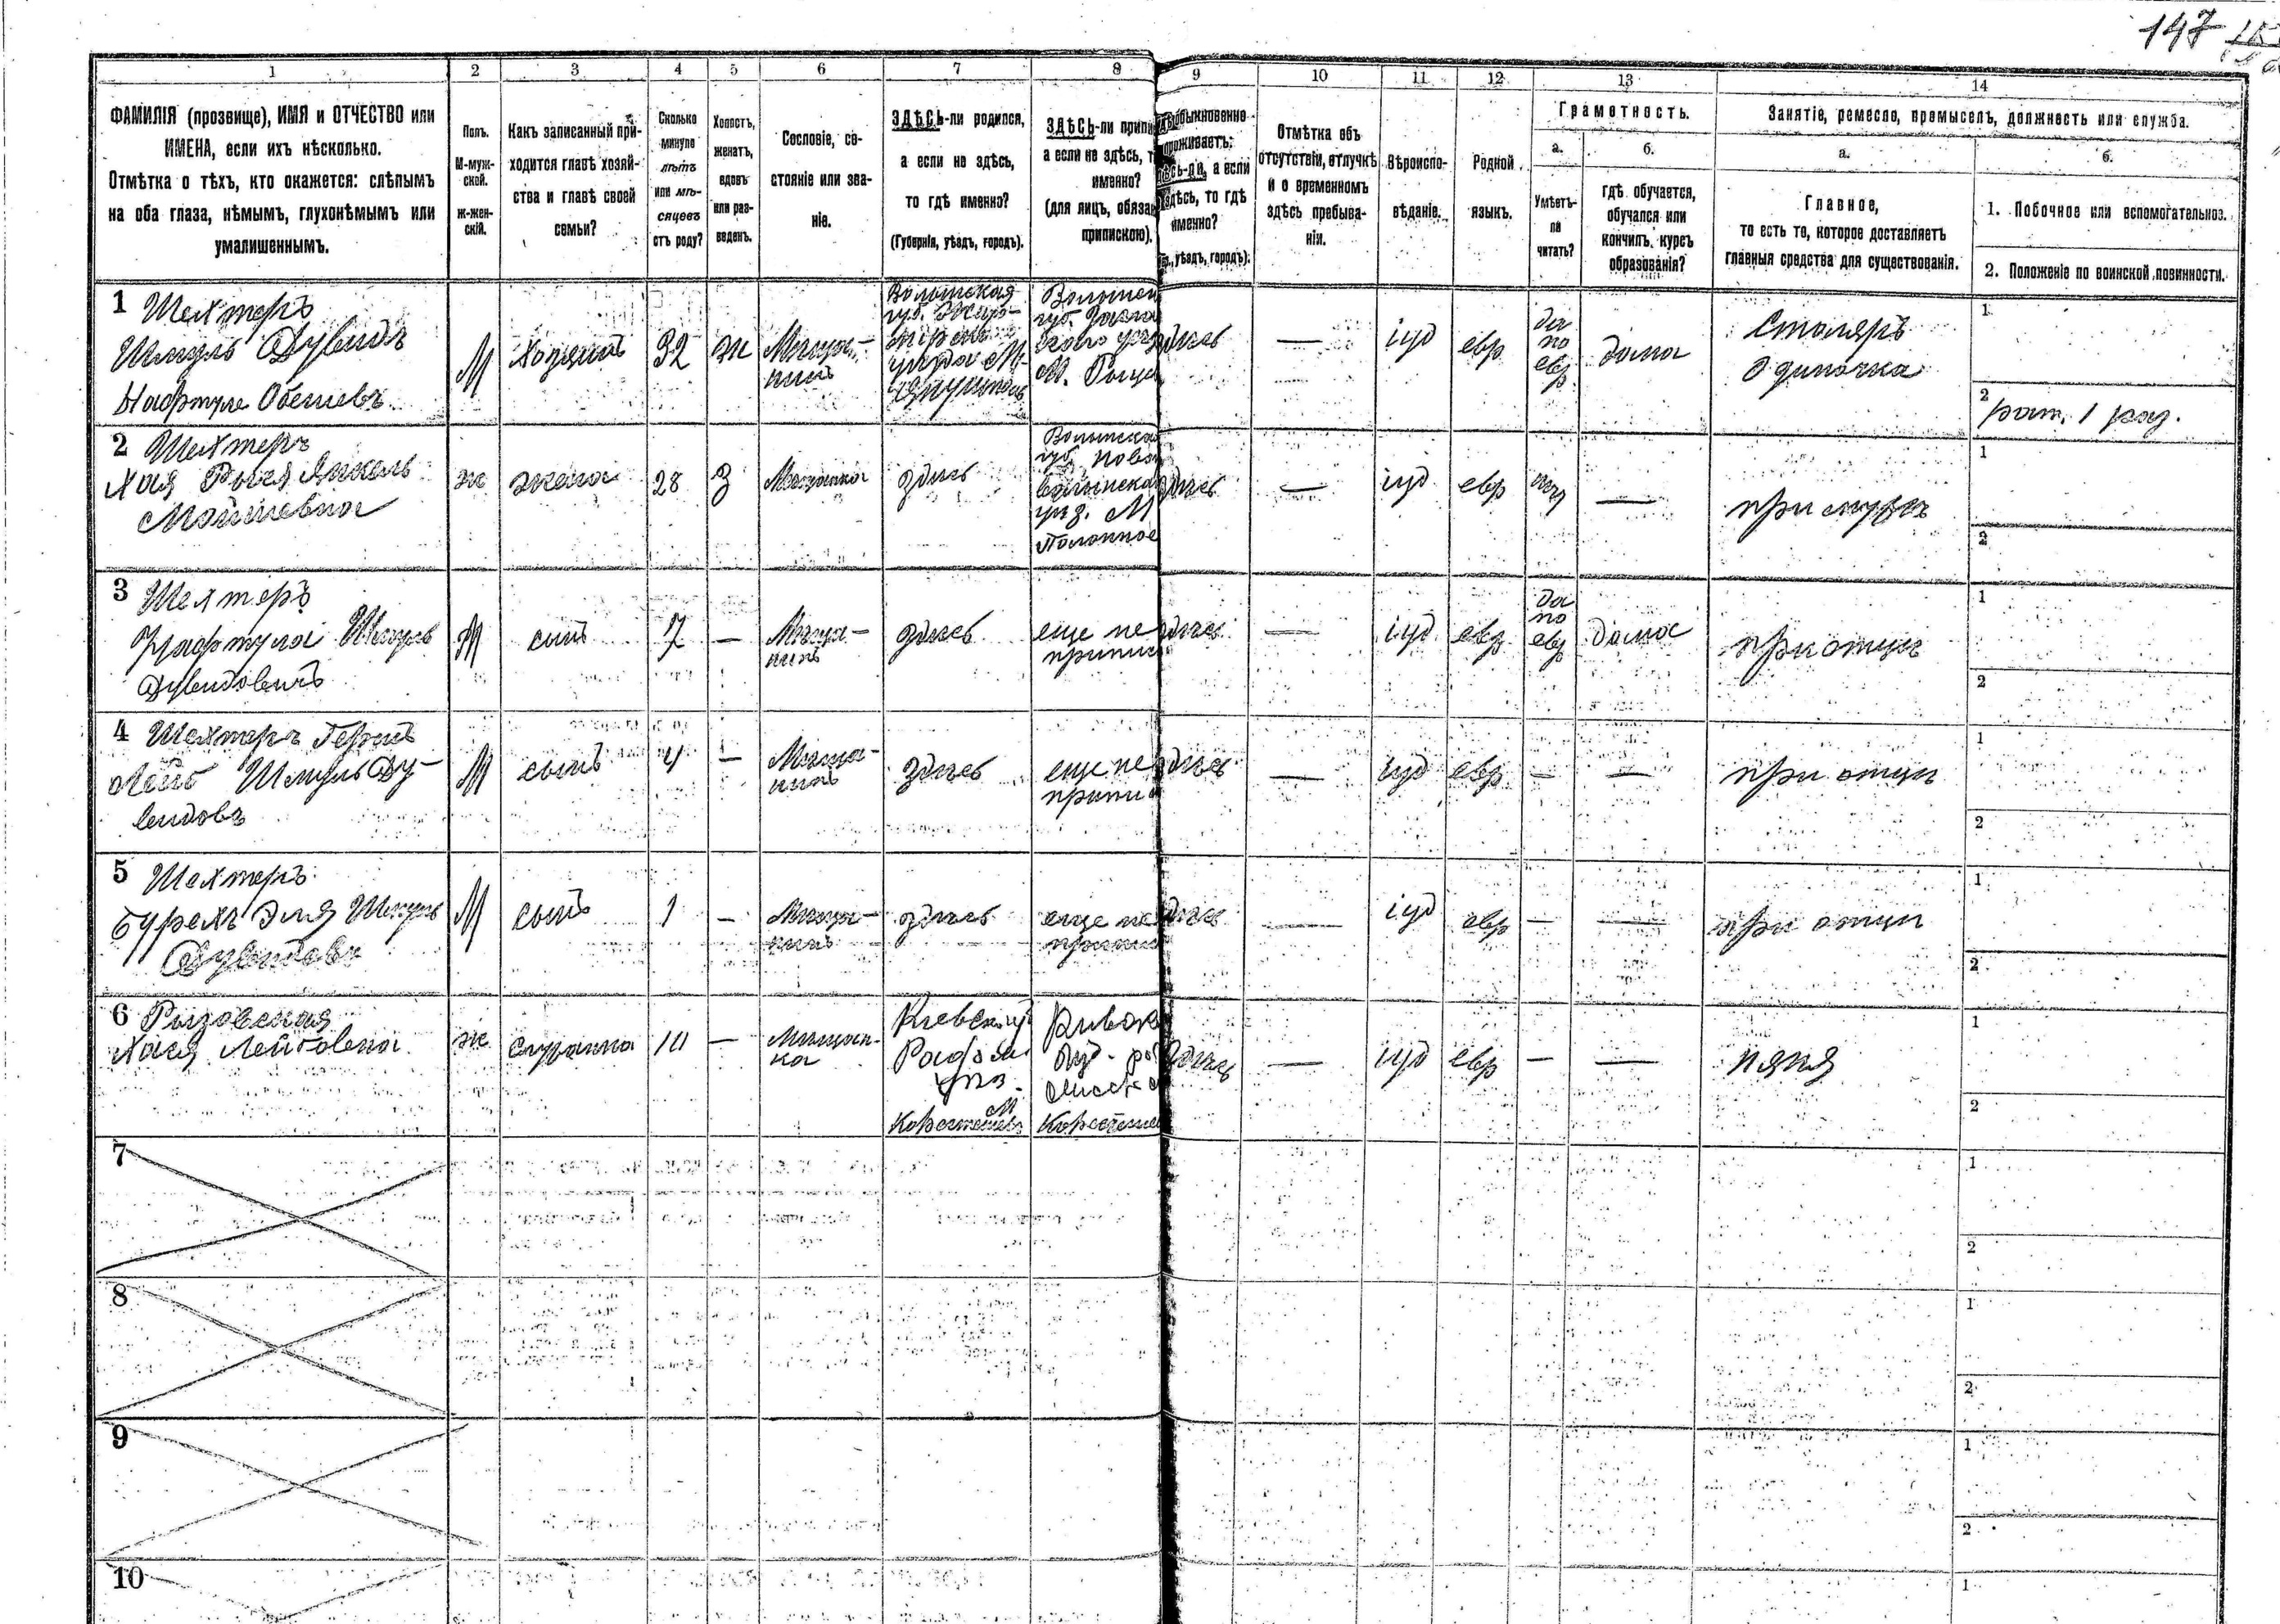 147
1 2 3 4 5 6 7 8 9 10 11 12 13 14
ФАМИЛІЯ (прозвище), ИМЯ и ОТЧЕСТВО или
ИМЕНА, если ихъ нѣсколько.
Отмѣтка о тѣхъ, кто окажется: слѣпымъ
на оба глаза, нѣмымъ, глухонѣмымъ или
умалишеннымъ.
Полъ.
М-муж-
ской.
ж-жен-
скій.
Какъ записанный при-
ходится главѣ хозяй-
ства и главѣ своей
семьи?
Сколько
минуло
лѣтъ
или мѣ-
сяцевъ
отъ роду?
Холостъ,
женатъ,
вдовъ
или раз-
веденъ.
Сословіе, со-
стояніе или зва-
ніе.
ЗДѢСЬ-ли родился,
а если не здѣсь,
то гдѣ именно?
(Губернія, уѣздъ, городъ).
ЗДѢСЬ-ли припи
а если не здѣсь, т
именно?
(для лицъ, обязан
припискою).
обыкновенно
проживаетъ:
здѣсь-ли, а если
здѣсь, то гдѣ
именно?
уѣздъ, городъ).
Отмѣтка объ
отсутствіи, отлучкѣ
и о временномъ
здѣсь пребыва-
ніи.
Вѣроиспо-
вѣданіе.
Родной
языкъ.
Грамотность.
а. б.
Умѣетъ-
ли
читать?
гдѣ обучается,
обучался или
кончилъ курсъ
образованія?
Занятіе, ремесло, промыселъ, должность или служба.
а. б.
Главное,
то есть то, которое доставляетъ
главныя средства для существованія.
1. Побочное или вспомогательное.
2. Положеніе по воинской повинности.
1 Шехтеръ
Шмуль Дувидъ
Нафтуле
М
Хозяинъ
32
ж
Мѣща-
нинъ
Волынская
губ.
Волынск
губ.
здѣсь
—
іуд
евр
да
по
евр
дома
Столяръ
Одиночка
1
2
рат. 1 раз.
2 Шехтеръ
Хая Рыся Янкель
Мошковна
ж
жена
28
З
Мѣщанка
здѣсь
Волынска
губ.Ново
волынска
уѣз. М
Полонное
здѣсь
—
іуд
евр
—
при мужѣ
1
2
3 Шехтеръ
Нафтула Шмуль
Дувидовичъ
М
сынъ
7
—
Мѣща-
нинъ
здѣсь
еще не
припис
здѣсь
—
іуд
евр
да
по
евр
дома
при отцѣ
1
2
4 Шехтеръ Гершъ
Лейб Шмуль Ду-
видовъ
М
сынъ
4
—
Мѣща-
нинъ
здѣсь
еще не
припи
здѣсь
—
іуд
евр
—
—
при отцѣ
1
2
5 Шехтеръ
Бурехъ Эля Шмуль
Дувидовъ
М
сынъ
1
—
Мѣща-
нинъ
здѣсь
еще не
припи
здѣсь
—
іуд
евр
—
—
при отцѣ
1
2
6
Хася Лейбовна
ж
служанка
—
Мѣщан-
ка
Кіевской
Радом
уѣз.
М
Коростышевъ
Коростыше
здѣсь
—
іуд
евр
—
—
няня
1
2
7
1
2
8
1
2
9
1
2
10
1